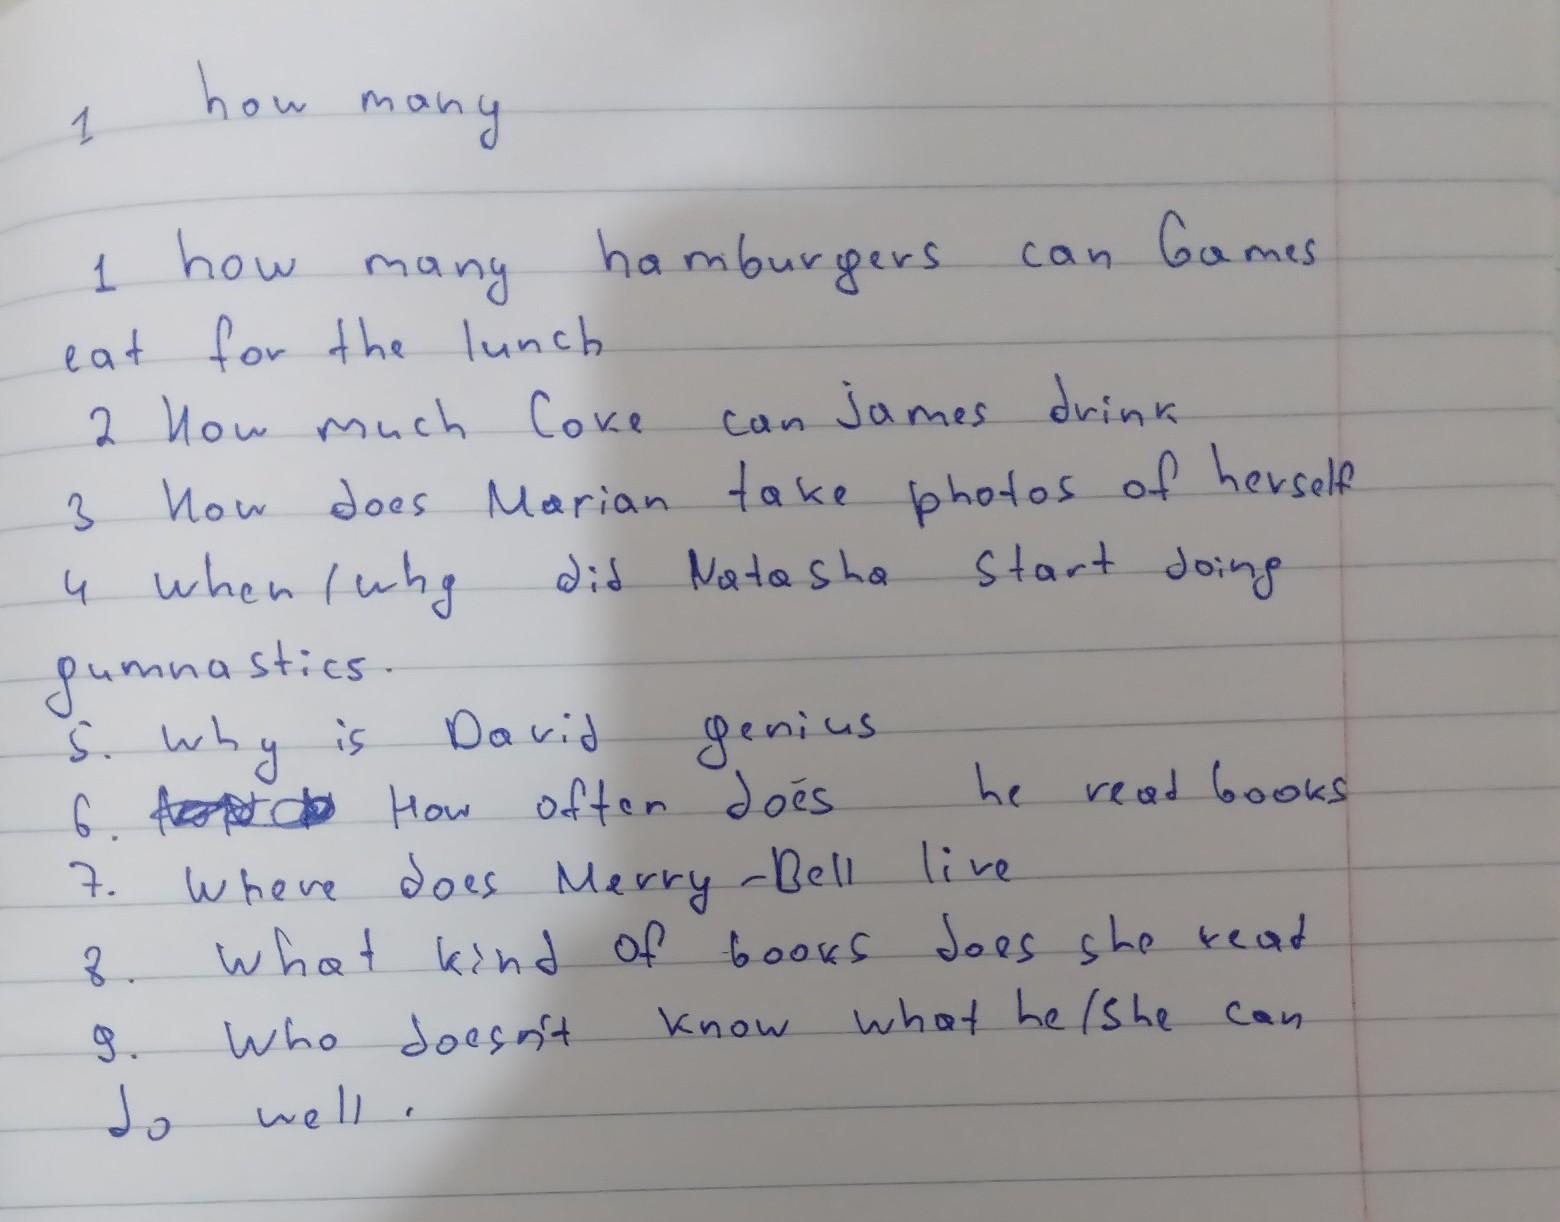 1 how many
1 how many hamburgers can Games
eat for the lunch
2 How much Coke can james drink
3 How does Marian take photos of herself
4 when/why did Natasha start doing
gumnastics.
5. why is David genius
6. How often does he read books
7. Where does Merry-Bell live
8. What kind of books does she read
9. Who doesn't know what he/she can
do well.